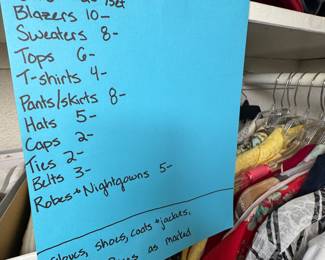 Blazers 10-
Sweaters 8-
Tops 6-
T-shirts 4-
Pants/skirts 8-
Hats 5-
Caps 2-
Ties 2-
Belts 3-
Robes + Nightgowns 5-
Gloves, shoes, coats + jackets,
as marked